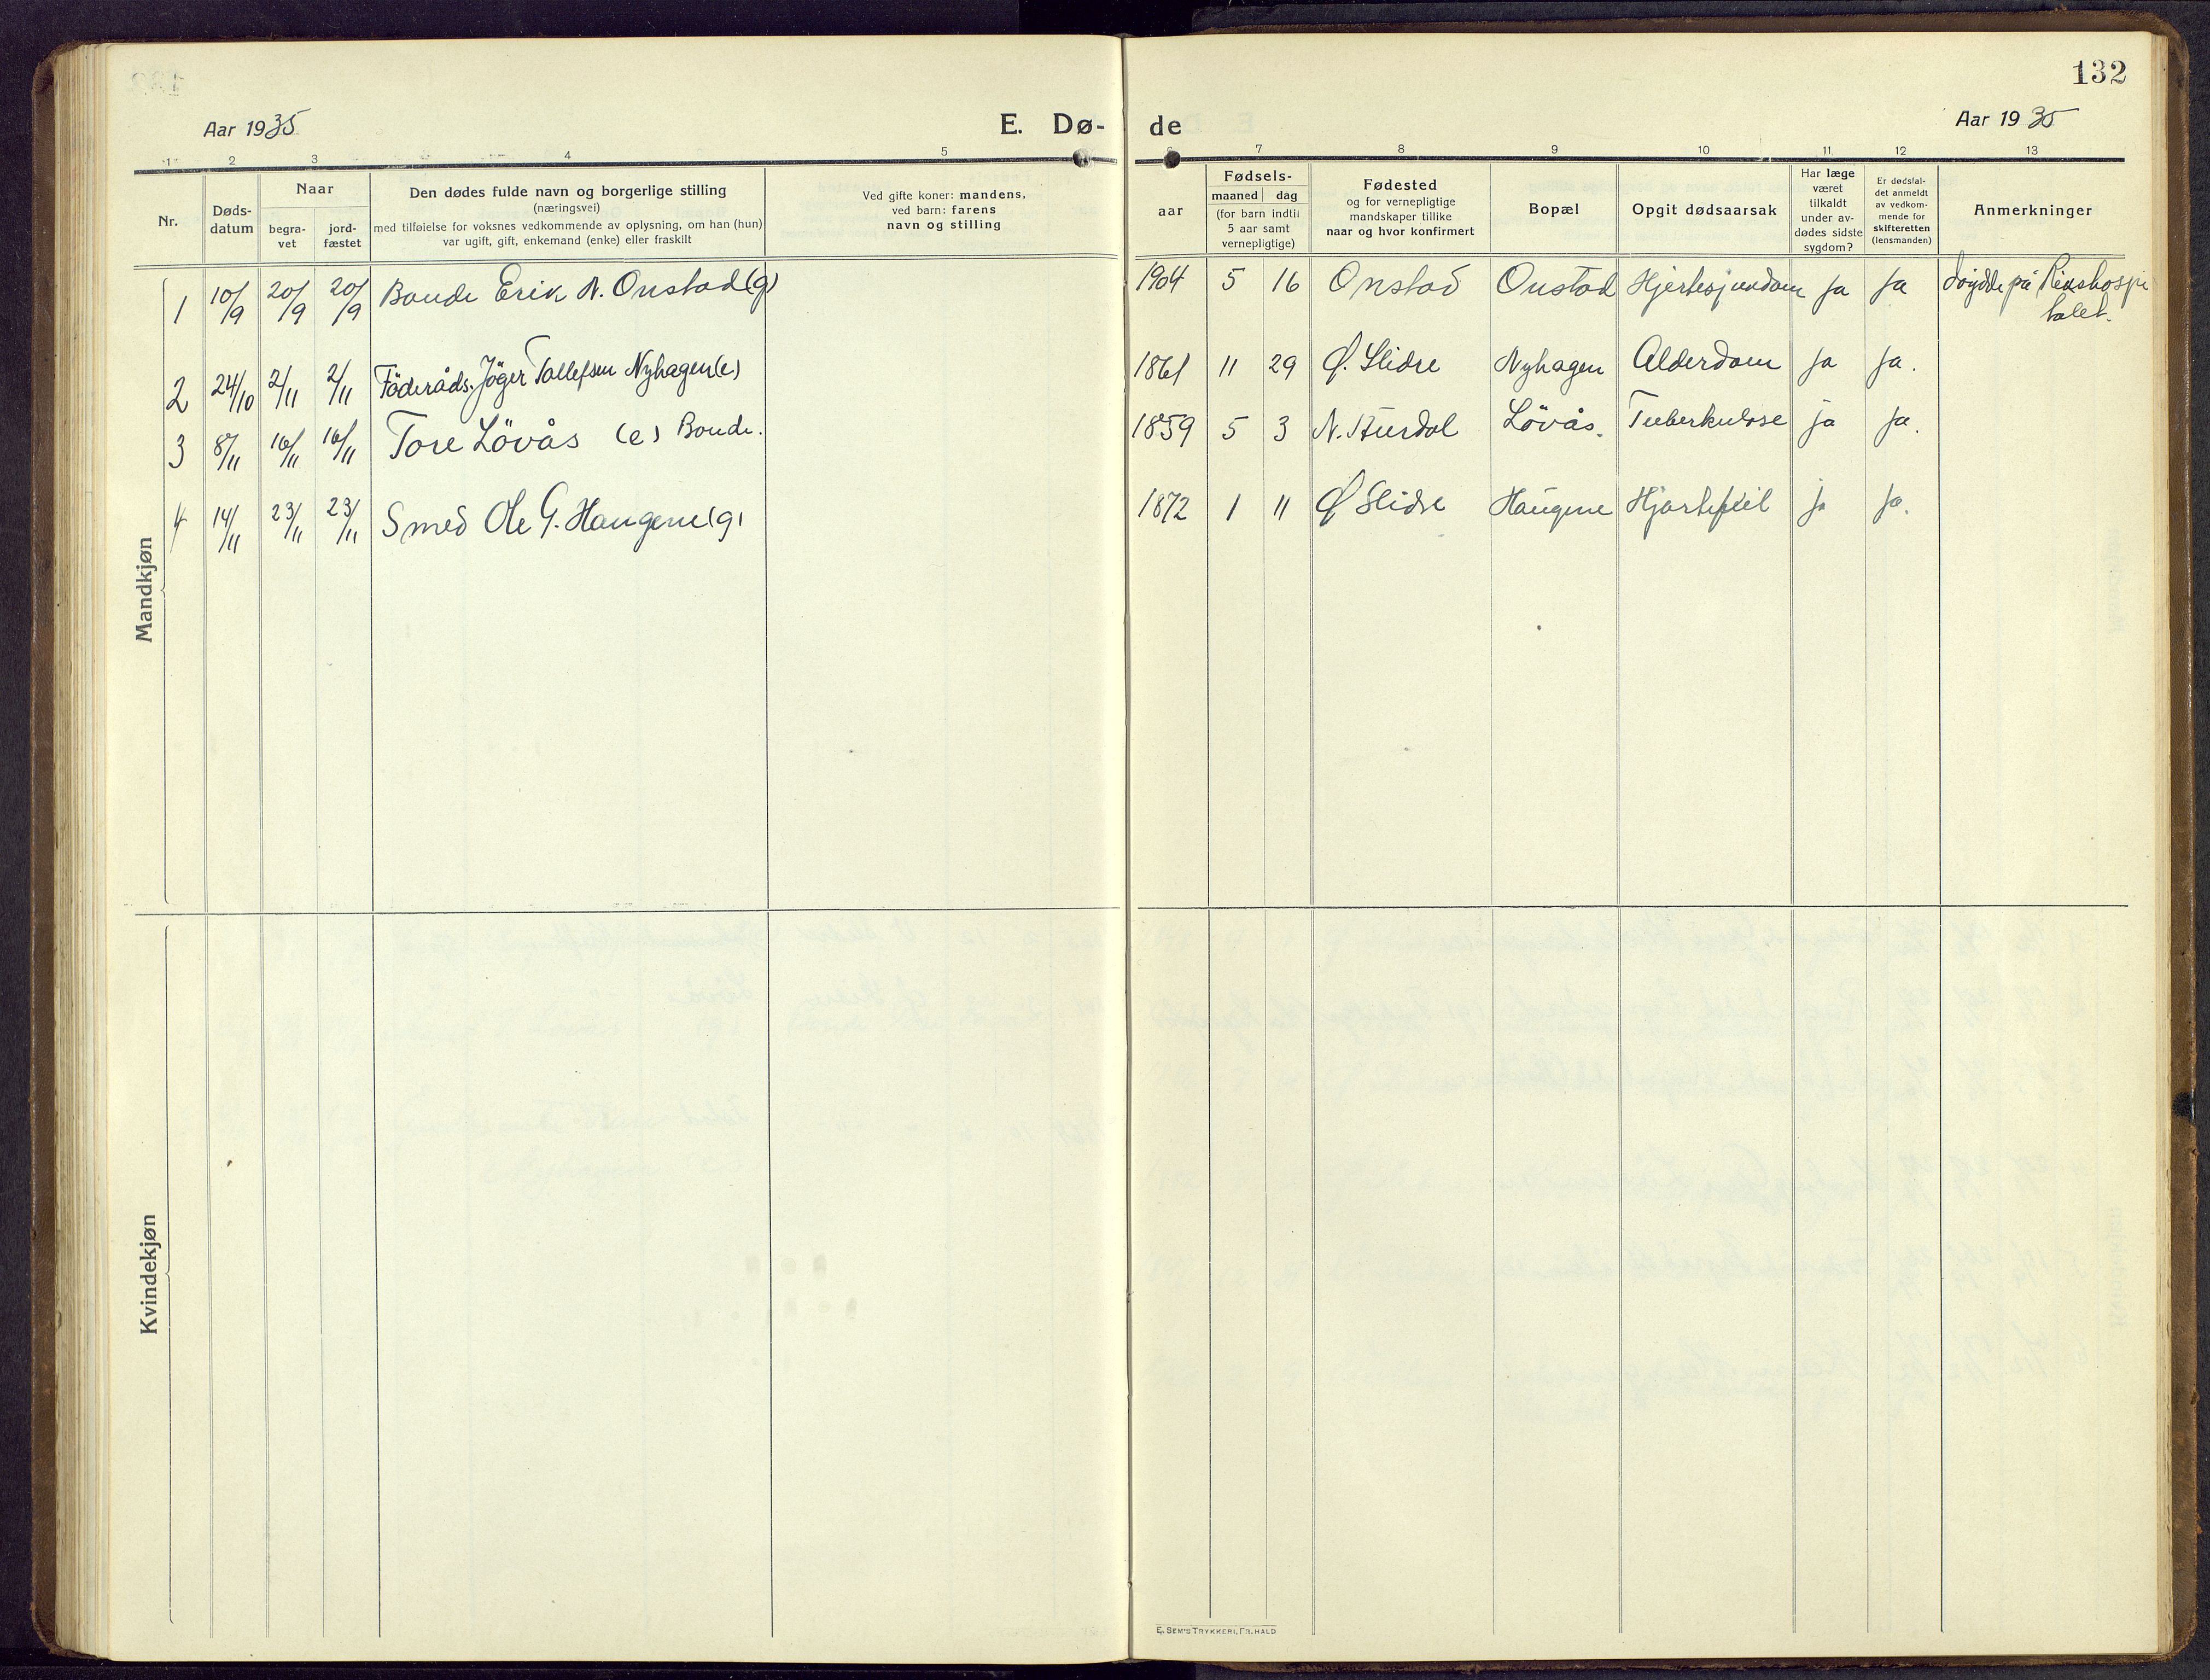 132
Aar 1935
E. Dø-
de
Aar 1935
1 2 3 4 5
6 7 8 9 10 11 12 13
Nr.
Døds-
datum
Naar
begra-
vet
jord-
fæstet
Den dødes fulde navn og borgerlige stilling
(næringsvei)
med tilføielse for voksnes vedkommende av oplysning, om han (hun)
var ugift, gift, enkemand (enke) eller fraskilt
Ved gifte koner: mandens,
ved barn: farens
navn og stilling
aar
Fødsels-
maaned dag
(for barn indtil
5 aar samt
vernepligtige)
Fødested
og for vernepligtige
mandskaper tillike
naar og hvor konfirmert
Bopæl
Opgit dødsaarsak
Har læge
været
tilkaldt
under av-
dødes sidste
sygdom?
Er dødsfal-
det anmeldt
av vedkom-
mende for
skifteretten
(lensmanden)
Anmerkninger
Mandkjøn
1 10/9 20/9 20/9 Bonde Erik N. Onstad (g) 1904 5 16 Onstad Onstad Hjertesjundom ja ja døydde på Rikshospi
talet.
2 24/10 2/11 2/11 Föderåds. Jöger Tollefsen Nyhagen (e) 1861 11 29 Ø. Slidre Nyhagen Alderdom ja ja.
3 8/11 16/11 16/11 Tore Lövås (e) Bonde. 1859 5 3 N. Aurdal Lövås. Tuberkulose ja ja.
4 14/11 23/11 23/11 Smed Ole G. Haugene (g) 1872 1 11 Ø Slidre Haugene Hjartefeil ja ja.
Kvindekjøn
E. SEM'S TRYKKERI, FR.HALD